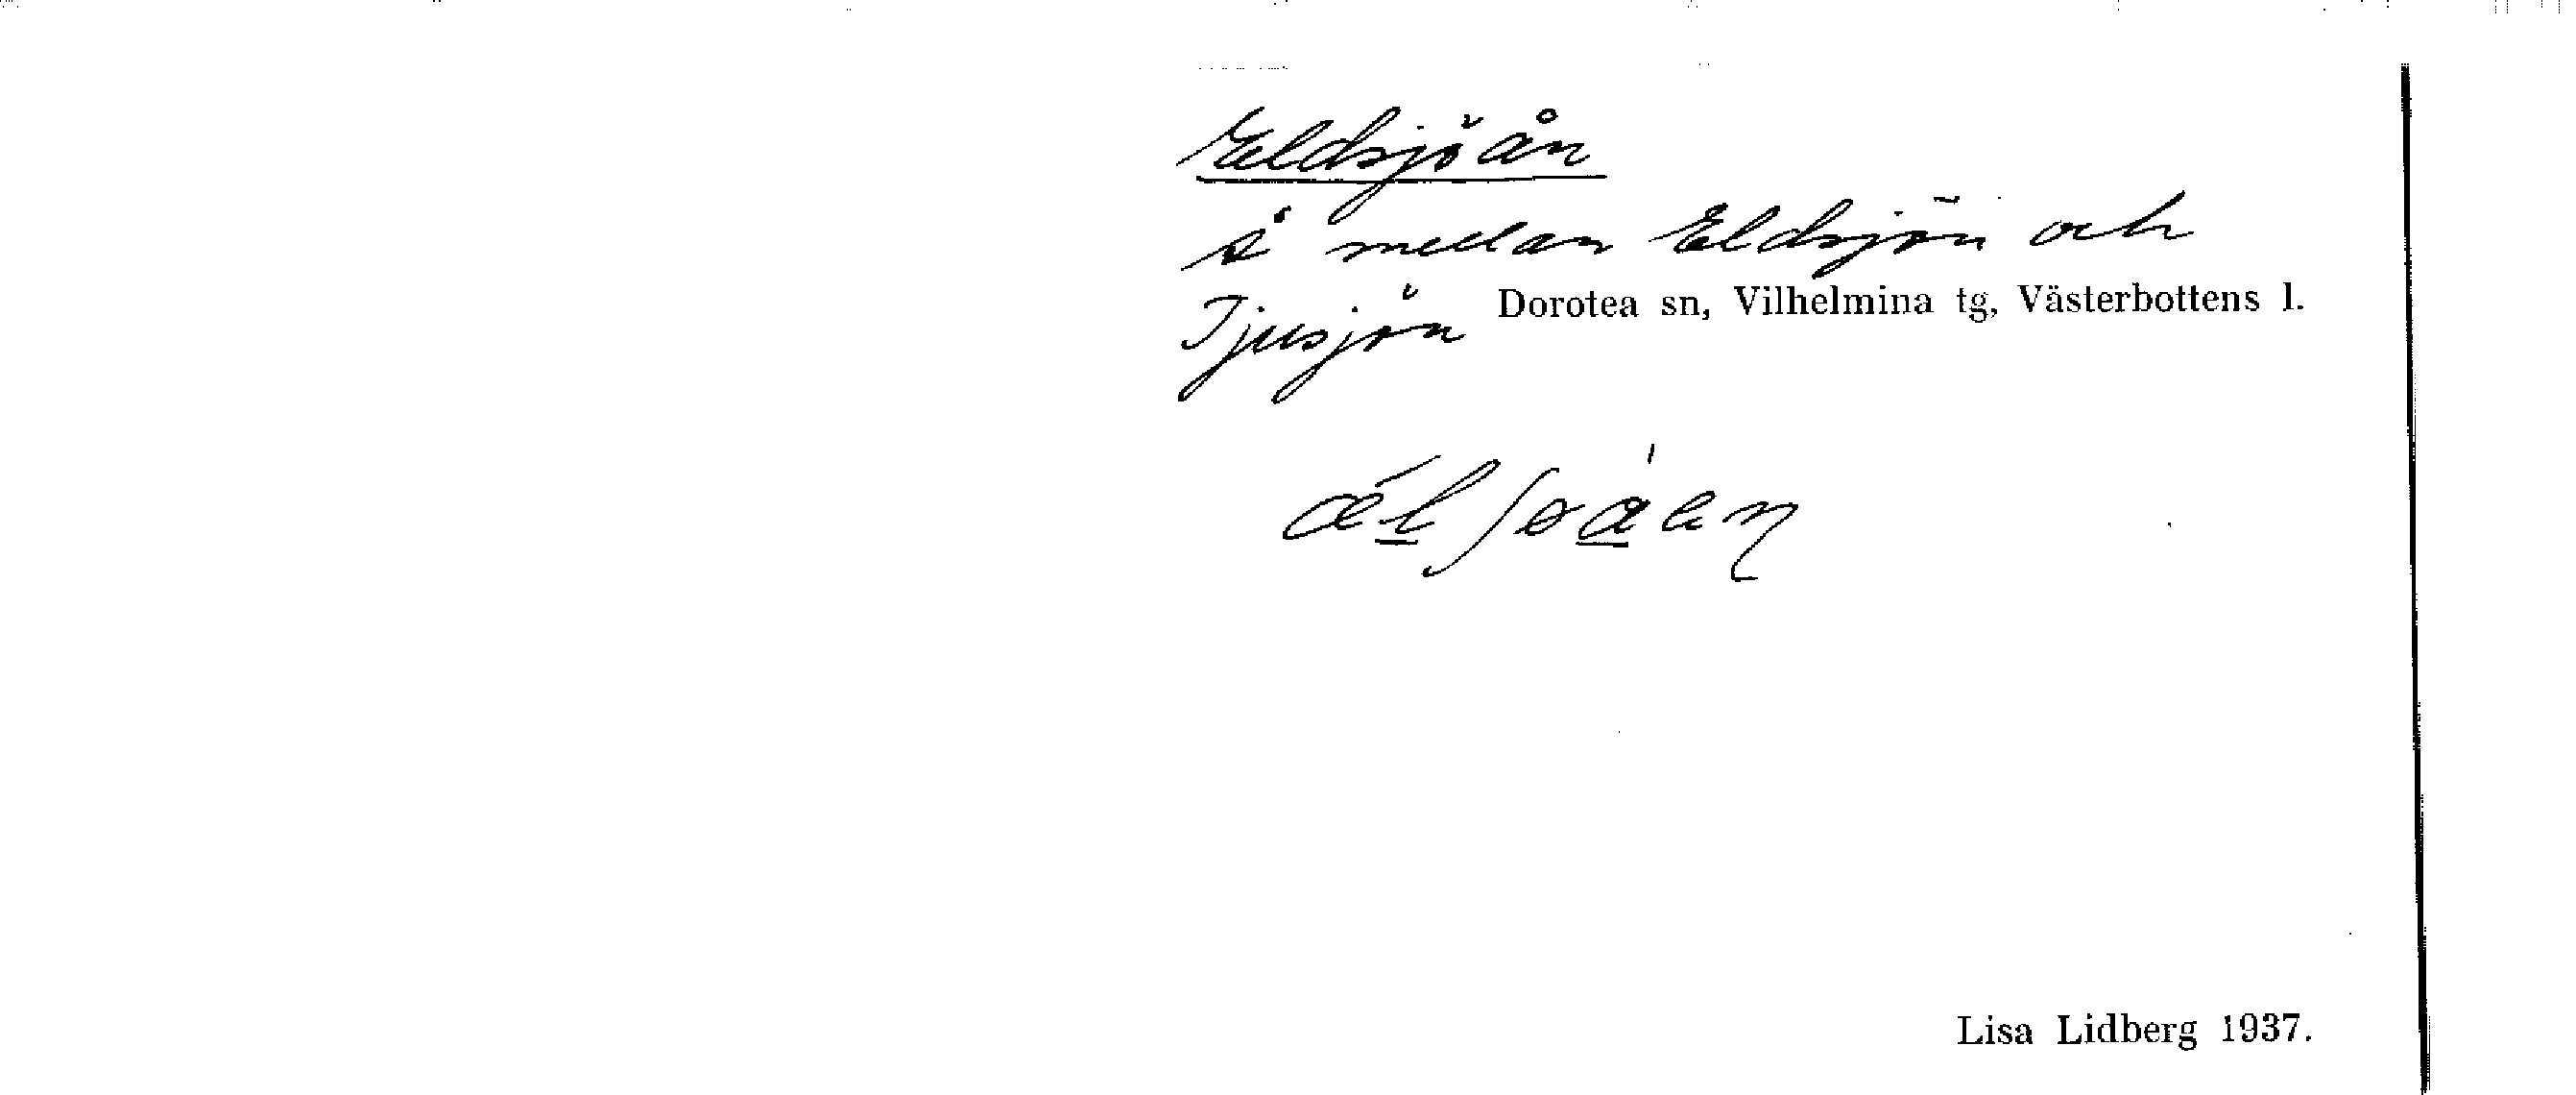 Eldsjöån
Å mellan Eldsjön och
Tjusjön Dorotea sn, Vilhelmina tg, Västerbottens l.
Lisa Lidberg 1937.